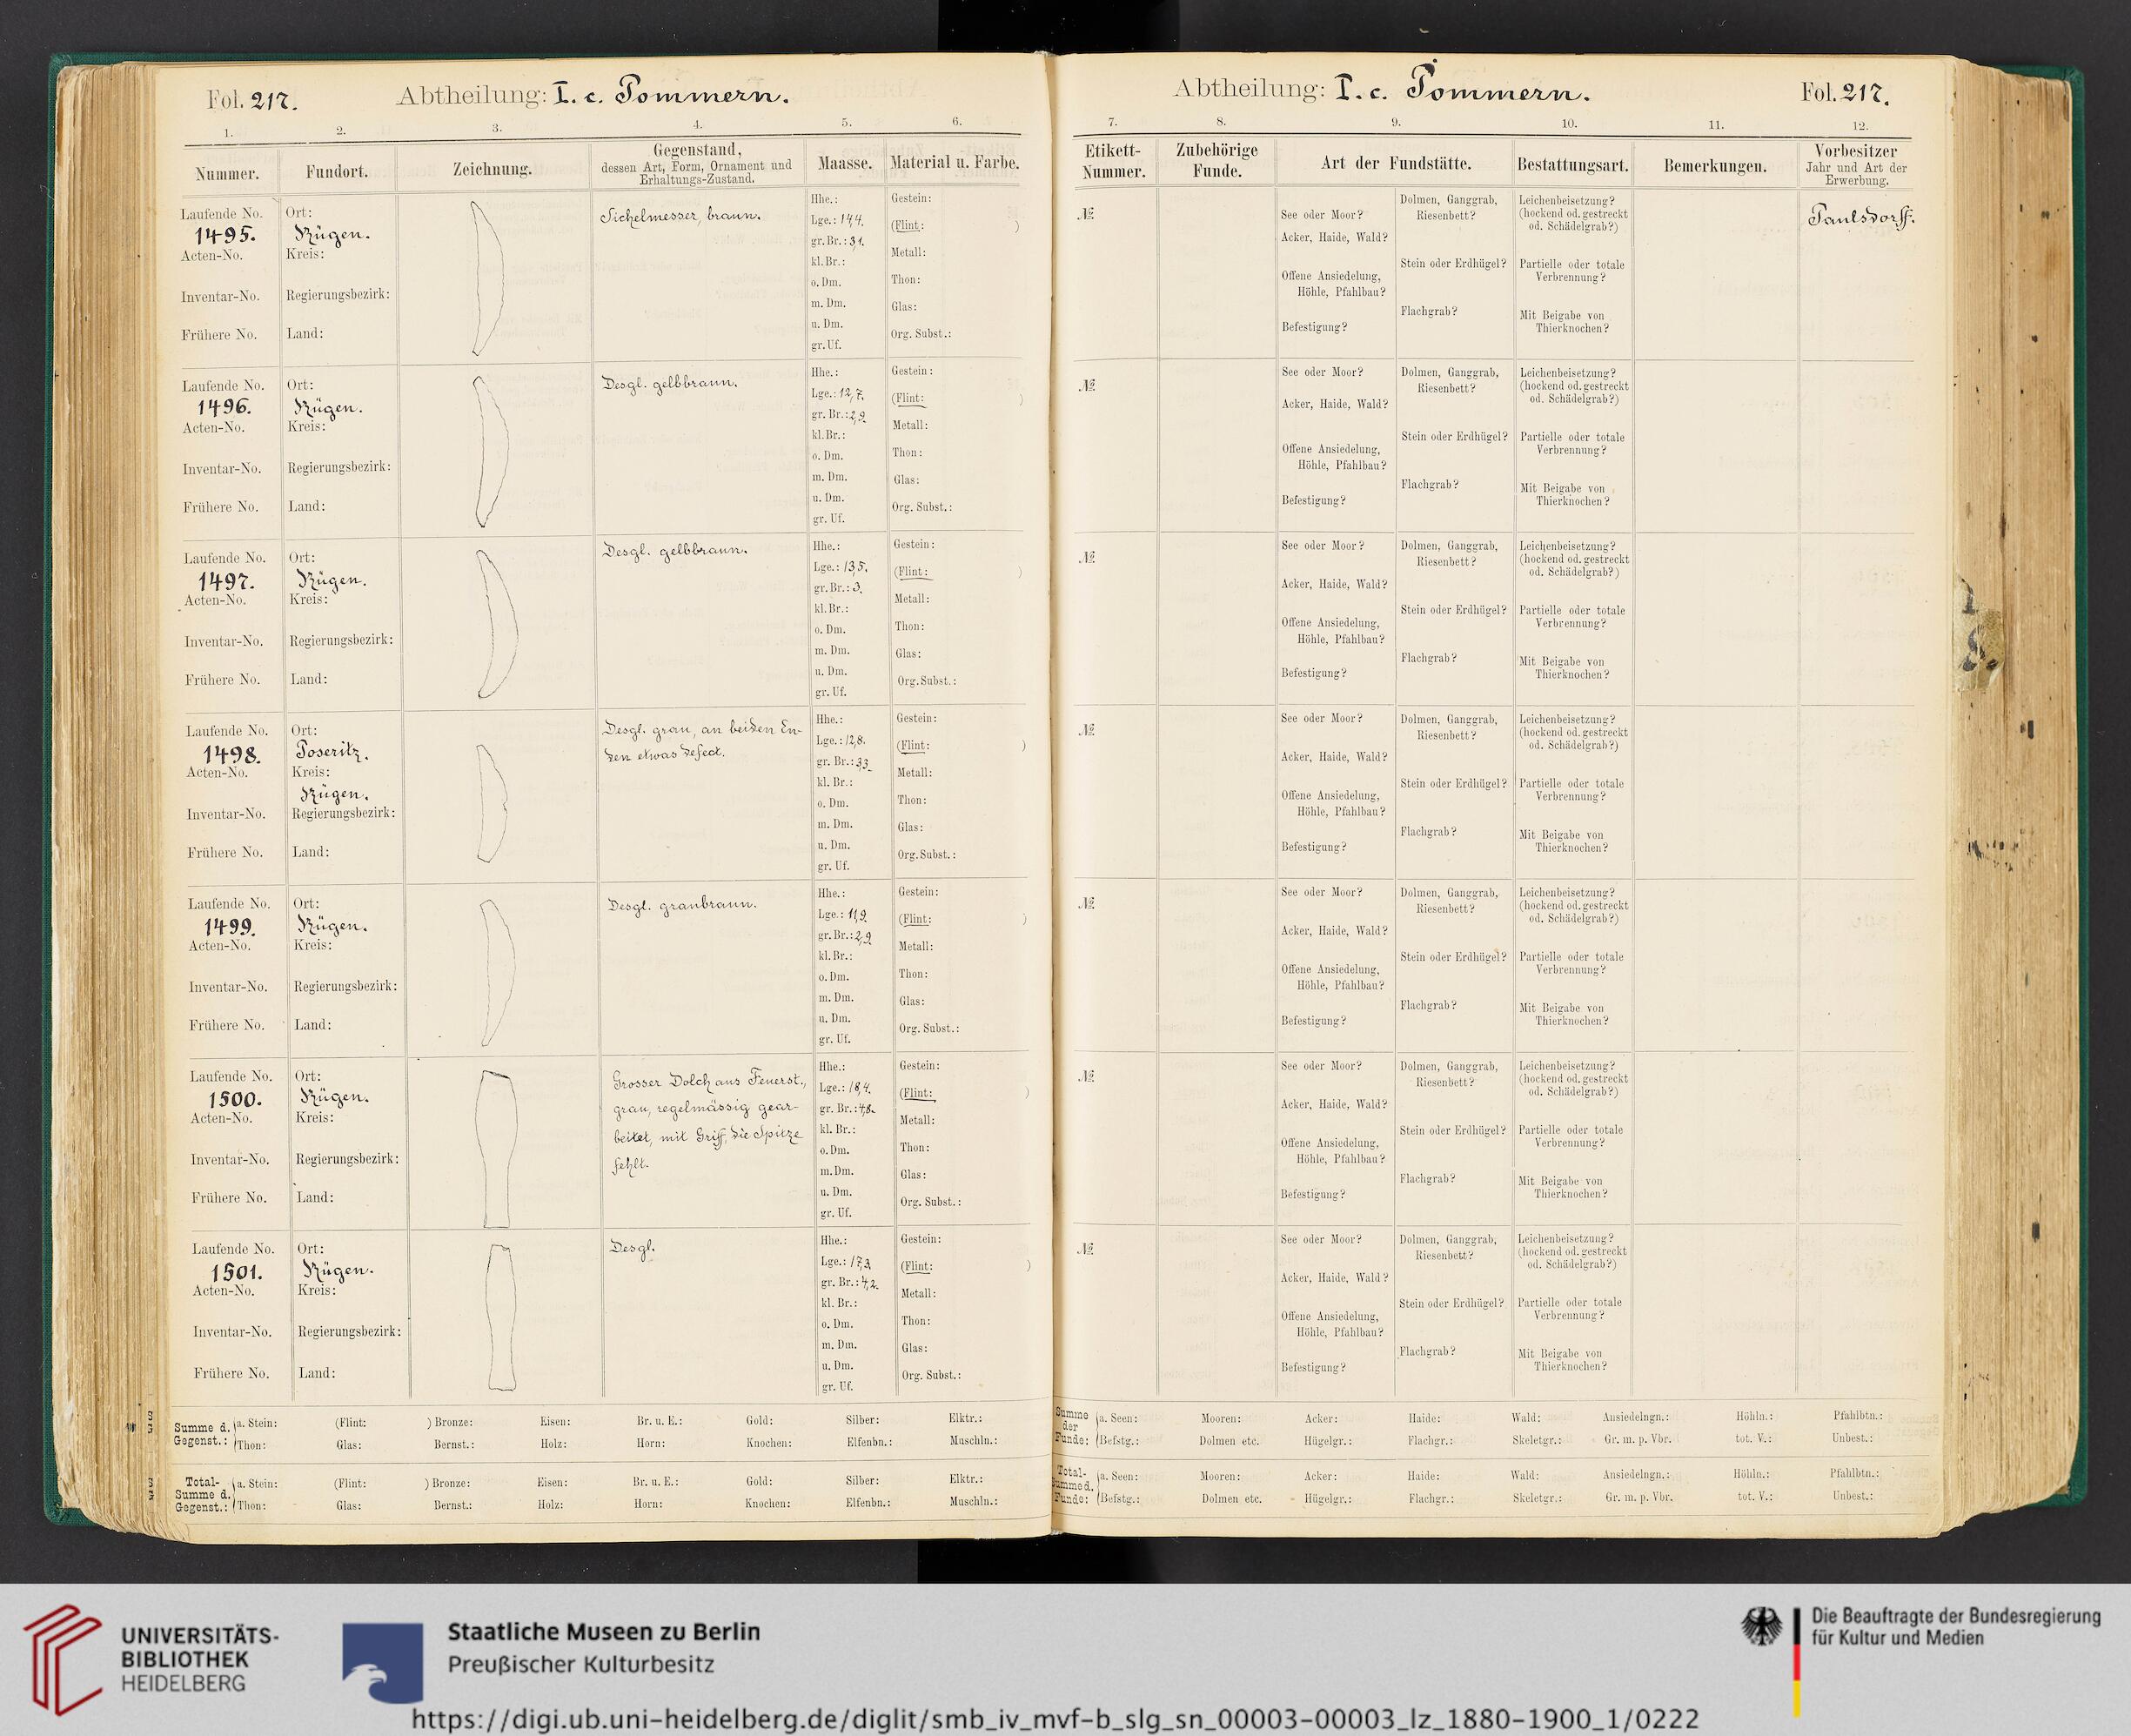 Fol. 217. Abtheilung: I. c. Pommern.
1. 2. 3. 4. 5. 6.
Nummer. Fundort. Zeichnung. Gegenstand, dessen Art, Form, Ornament und Erhaltungs-Zustand. Maasse. Material u. Farbe.
Laufende No. Ort: Sichelmesser, braun. Hhe.: Gestein:
1495. Rügen. Lge.: 14,4. (Flint: )
Acten-No. Kreis: gr. Br.: 3,1. Metall:
kl. Br.:
Inventar-No. Regierungsbezirk: o. Dm. Thon:
m. Dm. Glas:
Frühere No. Land: u. Dm. Org. Subst.:
gr. Uf.
Laufende No. Ort: Desgl. gelbbraun. Hhe.: Gestein:
1496. Rügen. Lge.: 12,7. (Flint: )
Acten-No. Kreis: gr. Br.: 2,9. Metall:
kl. Br.:
Inventar-No. Regierungsbezirk: o. Dm. Thon:
m. Dm. Glas:
Frühere No. Land: u. Dm. Org. Subst.:
gr. Uf.
Laufende No. Ort: Desgl. gelbbraun. Hhe.: Gestein:
1497. Rügen. Lge.: 13,5. (Flint: )
Acten-No. Kreis: gr. Br.: 3. Metall:
kl. Br.:
Inventar-No. Regierungsbezirk: o. Dm. Thon:
m. Dm. Glas:
Frühere No. Land: u. Dm. Org. Subst.:
gr. Uf.
Laufende No. Ort: Desgl. grau, an beiden En- Hhe.: Gestein:
1498. Poseritz. den etwas defect. Lge.: 12,8. (Flint: )
Acten-No. Kreis: gr. Br.: 3,3. Metall:
Rügen. kl. Br.:
Inventar-No. Regierungsbezirk: o. Dm. Thon:
m. Dm. Glas:
Frühere No. Land: u. Dm. Org. Subst.:
gr. Uf.
Laufende No. Ort: Desgl. graubraun. Hhe.: Gestein:
1499. Rügen. Lge.: 11,9. (Flint: )
Acten-No. Kreis: gr. Br.: 2,9. Metall:
kl. Br.:
Inventar-No. Regierungsbezirk: o. Dm. Thon:
m. Dm. Glas:
Frühere No. Land: u. Dm. Org. Subst.:
gr. Uf.
Laufende No. Ort: Grosser Dolch aus Feuerst., Hhe.: Gestein:
1500. Rügen. grau, regelmässig gear- Lge.: 18,4. (Flint: )
Acten-No. Kreis: beitet, mit Griff, die Spitze gr. Br.: 4,8. Metall:
fehlt. kl. Br.:
Inventar-No. Regierungsbezirk: o. Dm. Thon:
m. Dm. Glas:
Frühere No. Land: u. Dm. Org. Subst.:
gr. Uf.
Laufende No. Ort: Desgl. Hhe.: Gestein:
1501. Rügen. Lge.: 17,3. (Flint: )
Acten-No. Kreis: gr. Br.: 4,2. Metall:
kl. Br.:
Inventar-No. Regierungsbezirk: o. Dm. Thon:
m. Dm. Glas:
Frühere No. Land: u. Dm. Org. Subst.:
gr. Uf.
Summe d. Gegenst.: a. Stein: (Flint: ) Bronze: Eisen: Br. u. E.: Gold: Silber: Elktr.:
Thon: Glas: Bernst.: Holz: Horn: Knochen: Elfenbn.: Muschln.:
Total-Summe d. Gegenst.: a. Stein: (Flint: ) Bronze: Eisen: Br. u. E.: Gold: Silber: Elktr.:
Thon: Glas: Bernst.: Holz: Horn: Knochen: Elfenbn.: Muschln.:
Abtheilung: I. c. Pommern. Fol. 217.
7. 8. 9. 10. 11. 12.
Etikett-Nummer. Zubehörige Funde. Art der Fundstätte. Bestattungsart. Bemerkungen. Vorbesitzer Jahr und Art der Erwerbung.
№ See oder Moor? Dolmen, Ganggrab, Riesenbett? Leichenbeisetzung? (hockend od. gestreckt od. Schädelgrab?) Paulsdorff.
Acker, Haide, Wald?
Offene Ansiedelung, Höhle, Pfahlbau? Stein oder Erdhügel? Partielle oder totale Verbrennung?
Befestigung? Flachgrab? Mit Beigabe von Thierknochen?
№ See oder Moor? Dolmen, Ganggrab, Riesenbett? Leichenbeisetzung? (hockend od. gestreckt od. Schädelgrab?)
Acker, Haide, Wald?
Offene Ansiedelung, Höhle, Pfahlbau? Stein oder Erdhügel? Partielle oder totale Verbrennung?
Befestigung? Flachgrab? Mit Beigabe von Thierknochen?
№ See oder Moor? Dolmen, Ganggrab, Riesenbett? Leichenbeisetzung? (hockend od. gestreckt od. Schädelgrab?)
Acker, Haide, Wald?
Offene Ansiedelung, Höhle, Pfahlbau? Stein oder Erdhügel? Partielle oder totale Verbrennung?
Befestigung? Flachgrab? Mit Beigabe von Thierknochen?
№ See oder Moor? Dolmen, Ganggrab, Riesenbett? Leichenbeisetzung? (hockend od. gestreckt od. Schädelgrab?)
Acker, Haide, Wald?
Offene Ansiedelung, Höhle, Pfahlbau? Stein oder Erdhügel? Partielle oder totale Verbrennung?
Befestigung? Flachgrab? Mit Beigabe von Thierknochen?
№ See oder Moor? Dolmen, Ganggrab, Riesenbett? Leichenbeisetzung? (hockend od. gestreckt od. Schädelgrab?)
Acker, Haide, Wald?
Offene Ansiedelung, Höhle, Pfahlbau? Stein oder Erdhügel? Partielle oder totale Verbrennung?
Befestigung? Flachgrab? Mit Beigabe von Thierknochen?
№ See oder Moor? Dolmen, Ganggrab, Riesenbett? Leichenbeisetzung? (hockend od. gestreckt od. Schädelgrab?)
Acker, Haide, Wald?
Offene Ansiedelung, Höhle, Pfahlbau? Stein oder Erdhügel? Partielle oder totale Verbrennung?
Befestigung? Flachgrab? Mit Beigabe von Thierknochen?
№ See oder Moor? Dolmen, Ganggrab, Riesenbett? Leichenbeisetzung? (hockend od. gestreckt od. Schädelgrab?)
Acker, Haide, Wald?
Offene Ansiedelung, Höhle, Pfahlbau? Stein oder Erdhügel? Partielle oder totale Verbrennung?
Befestigung? Flachgrab? Mit Beigabe von Thierknochen?
Summe der Funde: a. Seen: Mooren: Acker: Haide: Wald: Ansiedelngn.: Höhln.: Pfahlbtn.:
Befstg.: Dolmen etc. Hügelgr.: Flachgr.: Skeletgr.: Gr. m. p. Vbr. tot. V.: Unbest.:
Total-Summe d. Funde: a. Seen: Mooren: Acker: Haide: Wald: Ansiedelngn.: Höhln.: Pfahlbtn.:
Befstg.: Dolmen etc. Hügelgr.: Flachgr.: Skeletgr.: Gr. m. p. Vbr. tot. V.: Unbest.:
UNIVERSITÄTS-
BIBLIOTHEK
HEIDELBERG
Staatliche Museen zu Berlin
Preußischer Kulturbesitz
Die Beauftragte der Bundesregierung
für Kultur und Medien
https://digi.ub.uni-heidelberg.de/diglit/smb_iv_mvf-b_slg_sn_00003-00003_lz_1880-1900_1/0222